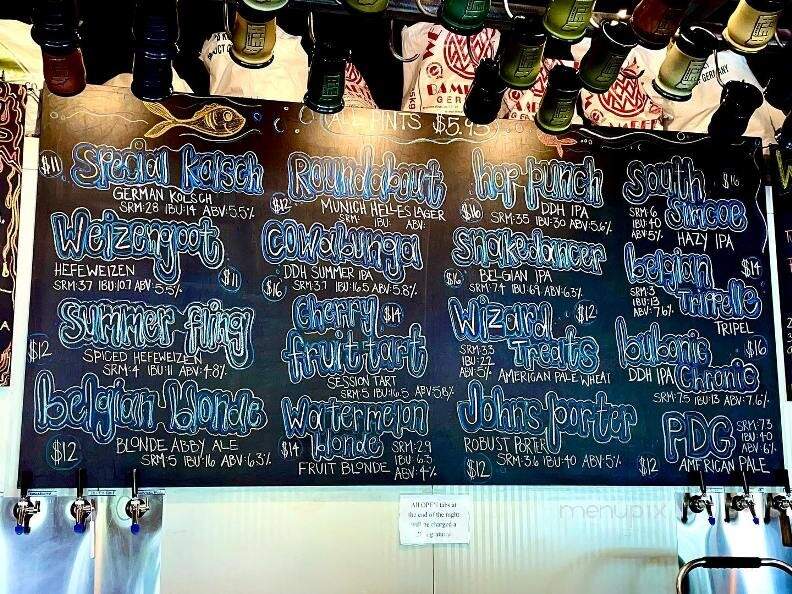 ALL PINTS $5.95
$11 Special Kolsch
GERMAN KOLSCH
SRM·28 IBU·14 ABV·5.5%
Weizengoot
HEFEWEIZEN
SRM·3.7 IBU·10.7 ABV·5.5%
$11
Summer fling
$12
SPICED HEFEWEIZEN
SRM·4 IBU·11 ABV·4.8%
belgian blonde
$12
BLONDE ABBY ALE
SRM·5 IBU·16 ABV·6.3%
Roundabout
$12
MUNICH HELLES LAGER
SRM: IBU: ABV:
COWabunga
DDH SUMMER IPA
$16
SRM·3.7 IBU·16.5 ABV·5.8%
Cherry $14
fruit tart
SESSION TART
SRM·5 IBU·16.5 ABV·5.8%
Watermelon
blonde
$14
SRM·2.9
IBU·6.3
ABV·4%
FRUIT BLONDE
hop punch
$16
DDH IPA
SRM·3.5 IBU·30 ABV·5.6%
Snakedancer
$16
BELGIAN IPA
SRM·7.4 IBU·69 ABV·6.3%
Wizard $12
Treats
SRM·3.3
IBU·27
ABV·5%
AMERICAN PALE WHEAT
Johns porter
ROBUST PORTER
$12
SRM·3.6 IBU·40 ABV·5%
South $16
Simcoe
SRM·6
IBU·40
ABV·5%
HAZY IPA
belgian $14
Trippelle
SRM·3
IBU·13
ABV·7.6%
TRIPEL
bubonic $16
DDH IPA Chronic
SRM·7.5 IBU·13 ABV·7.6%
PDG
SRM·7.3
IBU·40
ABV·6%
$12
AMERICAN PALE
All OPEN tabs at
the end of the night
will be charged a
gratuity
BAMBERG
GERMANY
menupix